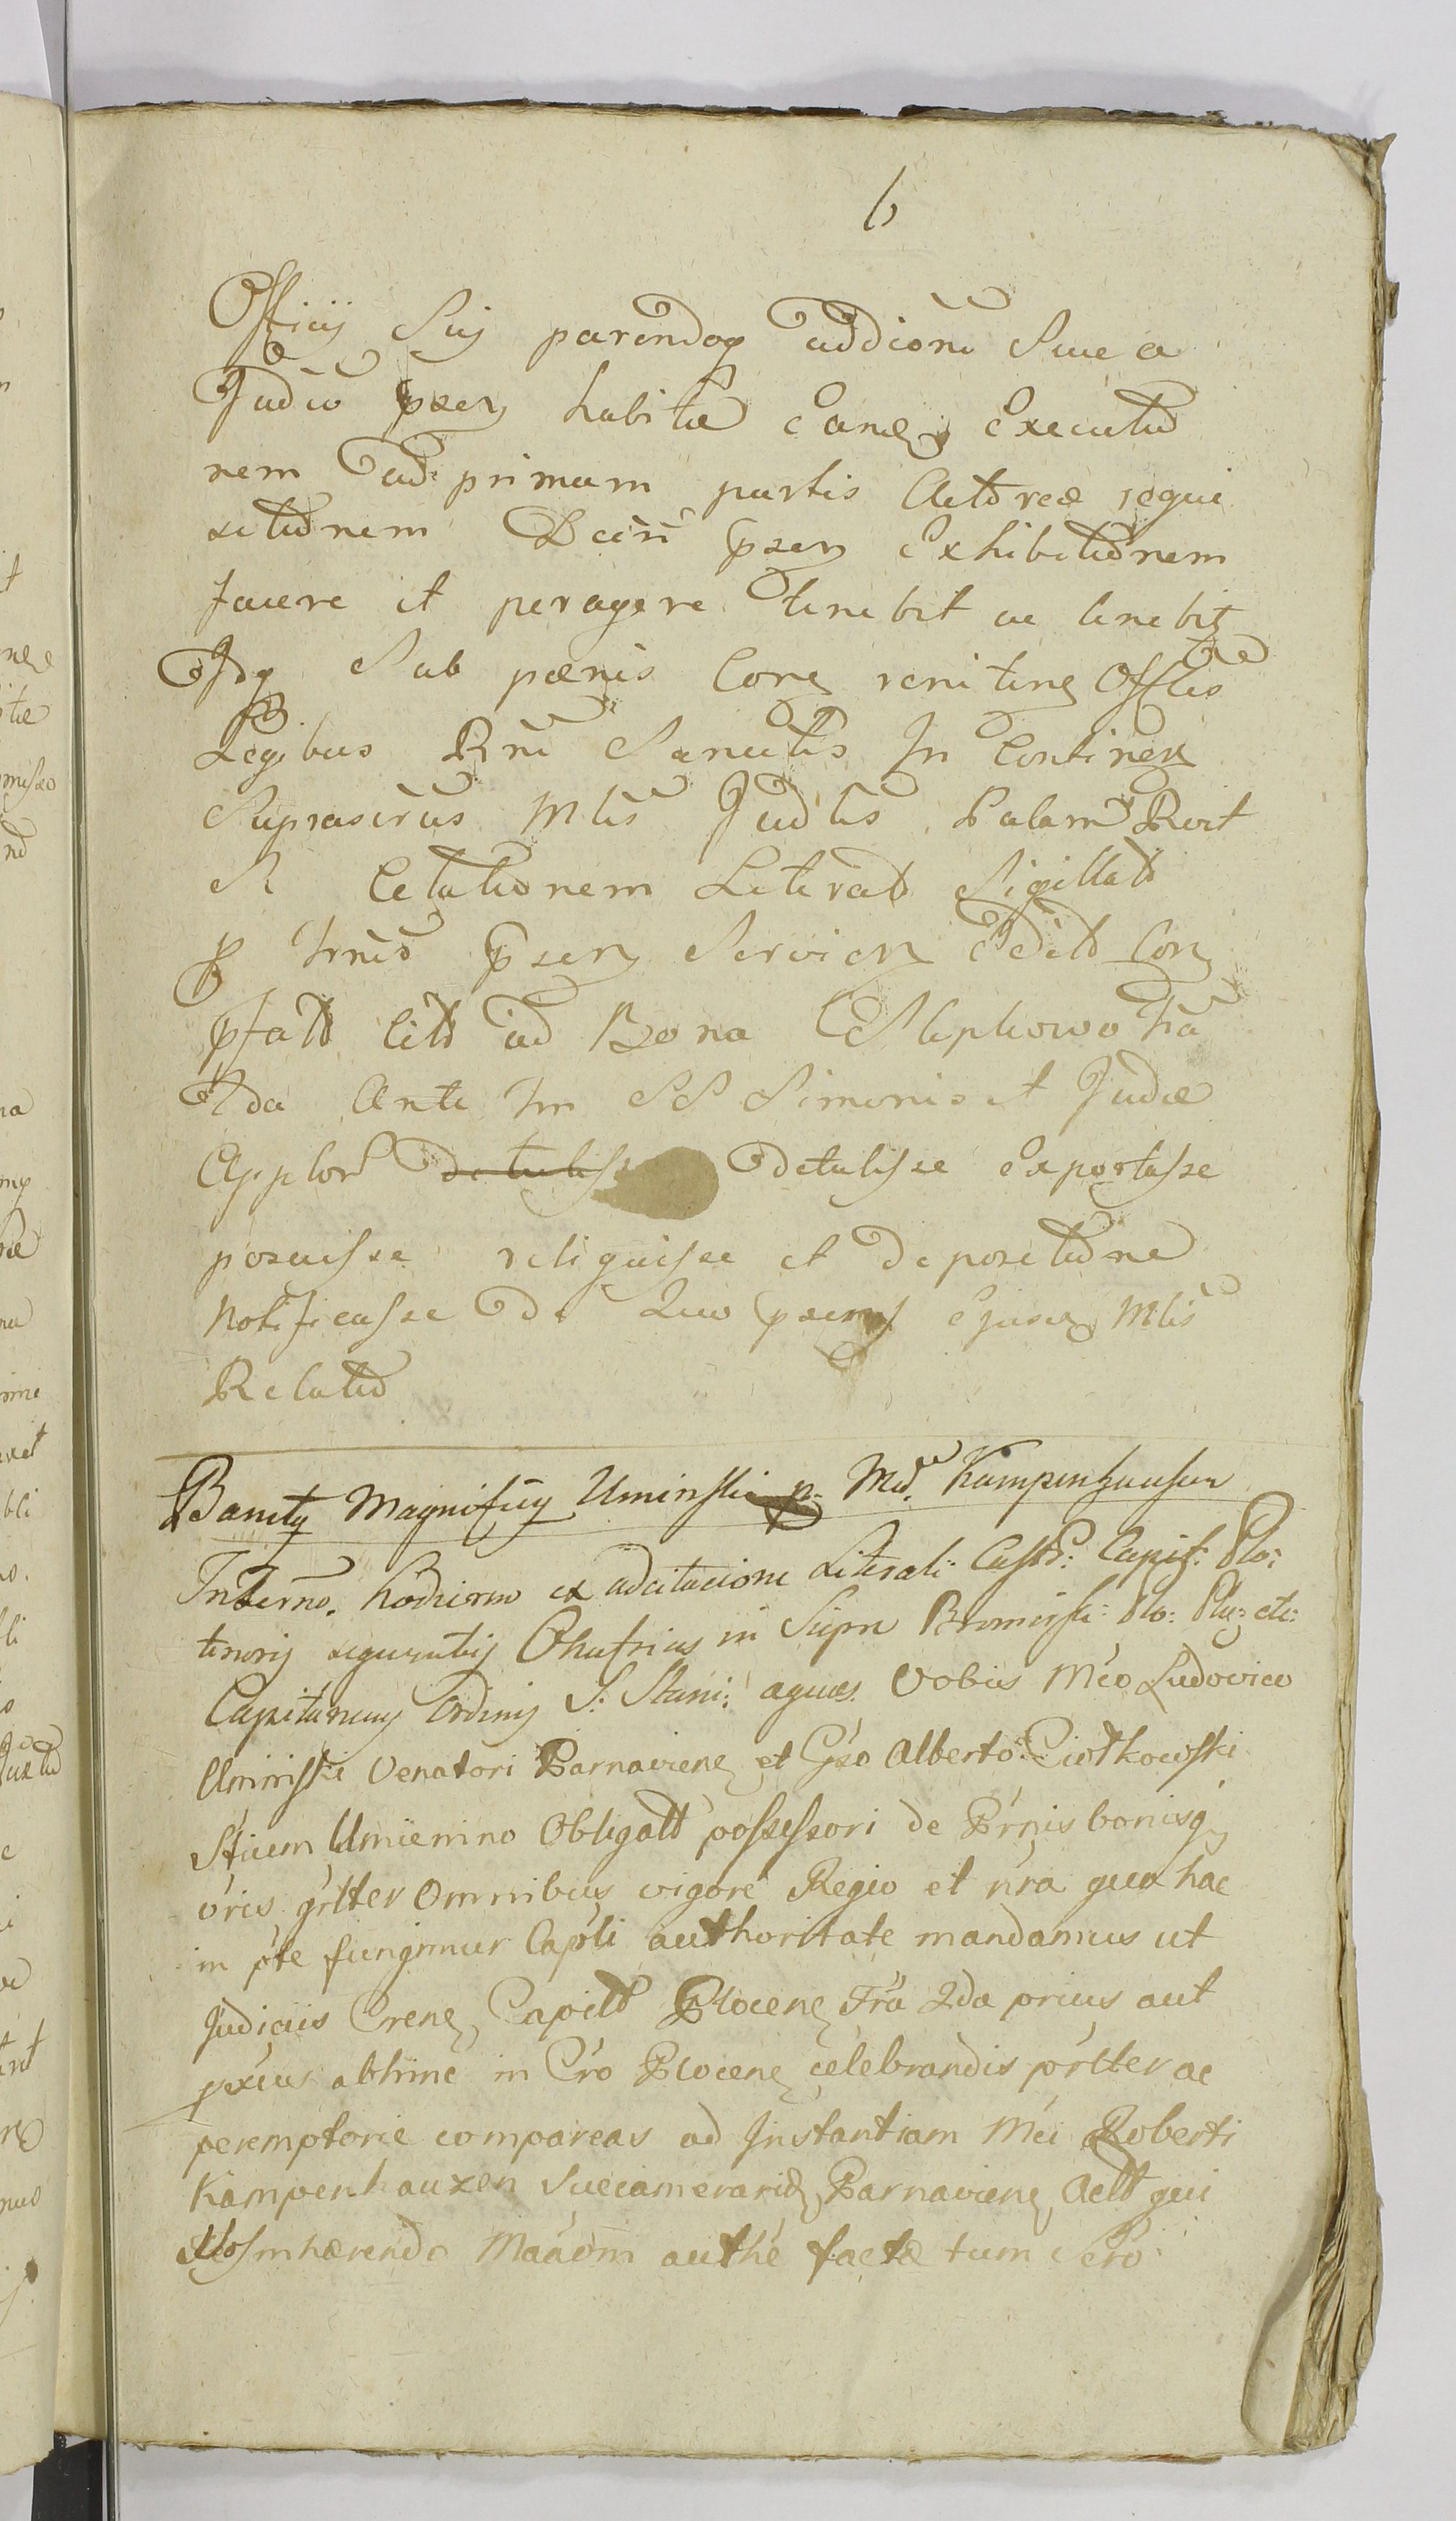 6
Officij Suj parendoq addiōni Suae a
Judīo pñsen habitæ Eandq Executio
nem ad primam partis Actoreæ requi
sitionem Decīñ pñsen Exhibitionem
facere et peragere tenebit ac tenebitz
Idq Sub pœnis Con̄ renitene Offles
Legibus Rn̄i Sancitis In Continen
Suprascrūs Mlis Judlis Palam Rcit
Citationem Literat Sigillat
p hn̄c pñsen Servien Edit Con
pfat Cit ad Bona Slepkowo Fr̄a
2da Ante Fm SS Simonis et Judæ
Applor detulisse detulisse exportasse
posuisse reliquisse et de positione
notificasse de quo pñsens Ejusd Mlis
Relatio
Banitꝫ Magnifici Uminski p. Md. Kampenhausen
In Termo. hodierno ex adcitacione Literali Castr: Capit: Plo:
tenoris sequentis Onufrius in Supra Bromirski Plo: Plu: etc:
Capitaneus Ordinis S: Stani: aques. Vobis Mco Ludovico
Uminski Venatori Parnaviene et Gso Alberto Ciotkowski
Stium Umienino Obligatt possessori de Prnis bonisq
vris grltter omnibus vigore Regio et nra qua hac
in pte fungimur Capli authoritate mandamus ut
Judiciis Crene Capitt Plocene Fra 2da prius aut
pxius abhinc in Cro Plocene celebrandis prltter ac
peremptorie compareas ad Instantiam Mci Roberti
Kampenhauzen Succamerarid Parnaviene Actt qui
inhærendo Maaom authe factæ tum Sero